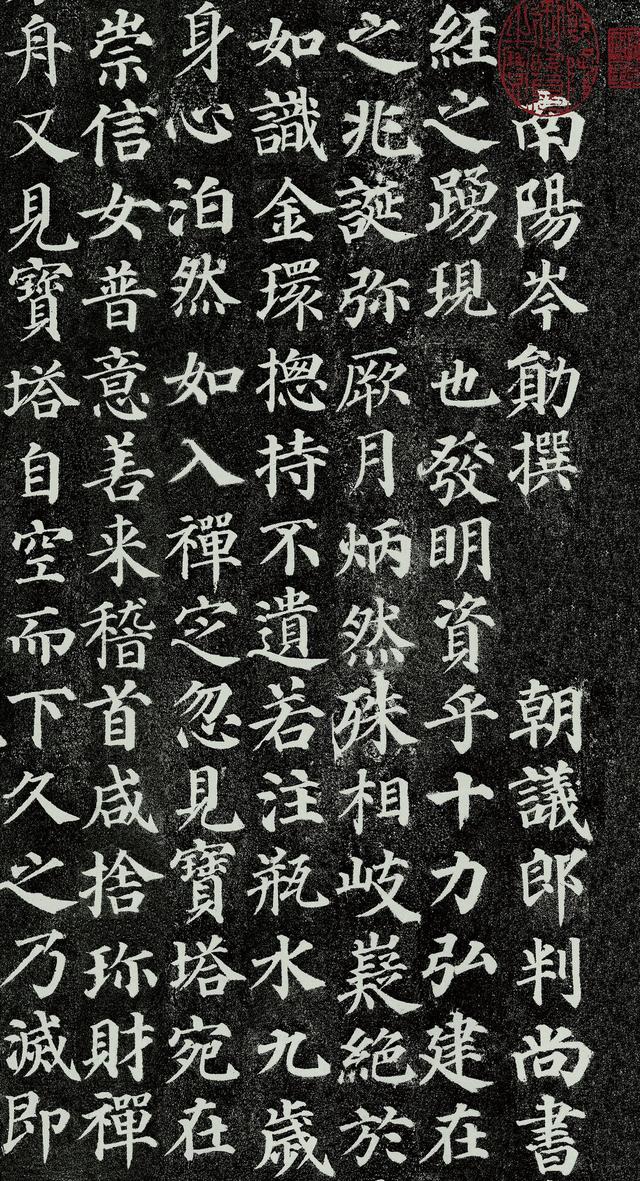 南陽岑勛撰 朝議郎判尚書
經之踴現也發明資乎十力弘建在
之兆誕弥厥月炳然殊相岐嶷絕於
如識金環揔持不遺若注瓶水九歲
身心泊然如入禪定忽見寶塔宛在
崇信女普意善来稽首咸捨珎財禪
舟又見寶塔自空而下久之乃滅即